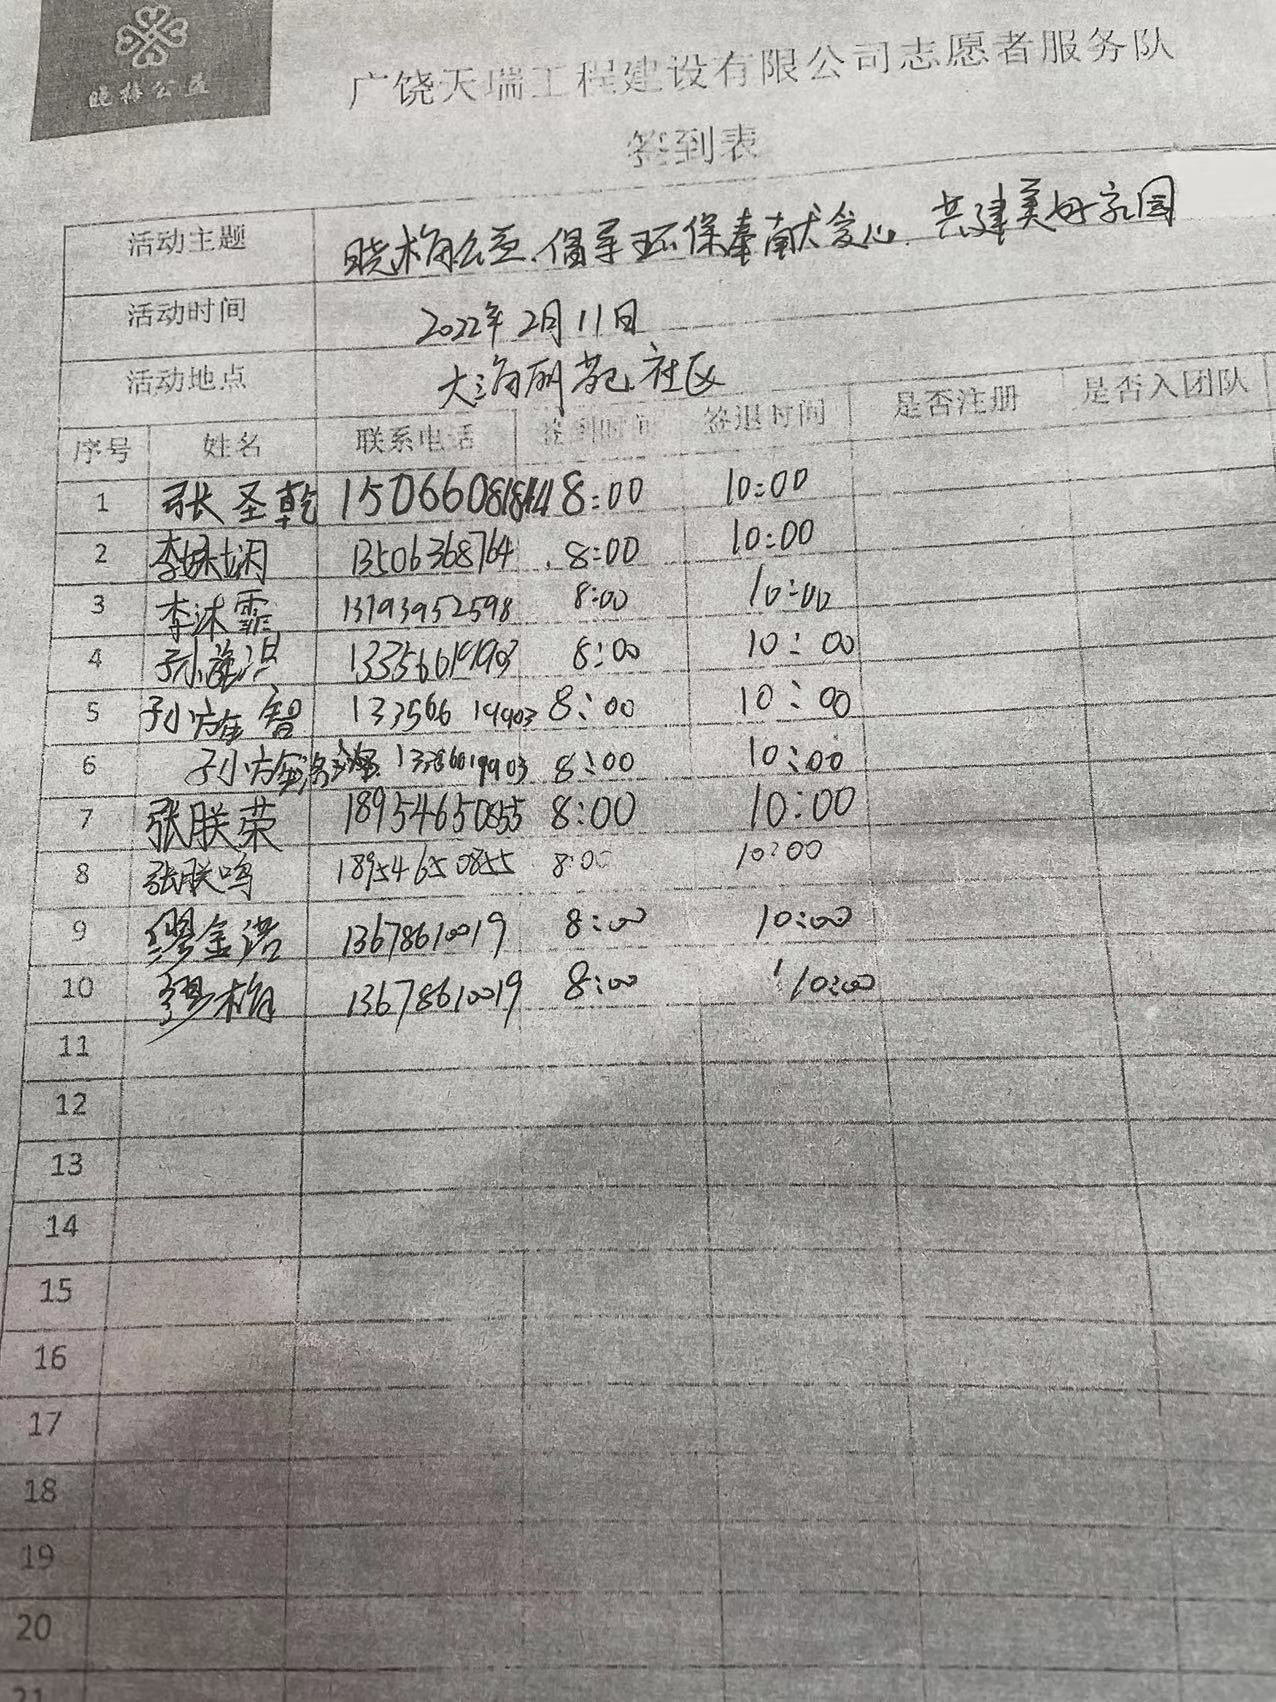 晓梅公益
广饶天瑞工程建设有限公司志愿者服务队
签到表
活动主题 晓梅公益.倡导环保奉献爱心.共建美好家园
活动时间 2022年2月11日
活动地点 大海丽苑社区
序号 姓名 联系电话 签到时间 签退时间 是否注册 是否入团队
1 张圣乾 8:00 10:00
2 李 13506368764 8:00 10:00
3 李沐霏 13793952598 8:00 10:00
4 孙 13356619903 8:00 10:00
5 孙 智 13356619903 8:00 10:00
6 孙 8:00 10:00
7 张朕荣 18954650855 8:00 10:00
8 张朕鸣 18954650855 8:00 10:00
9 缪金诺 13678610019 8:00 10:00
10 缪梅 13678610019 8:00 10:00
11
12
13
14
15
16
17
18
19
20
21